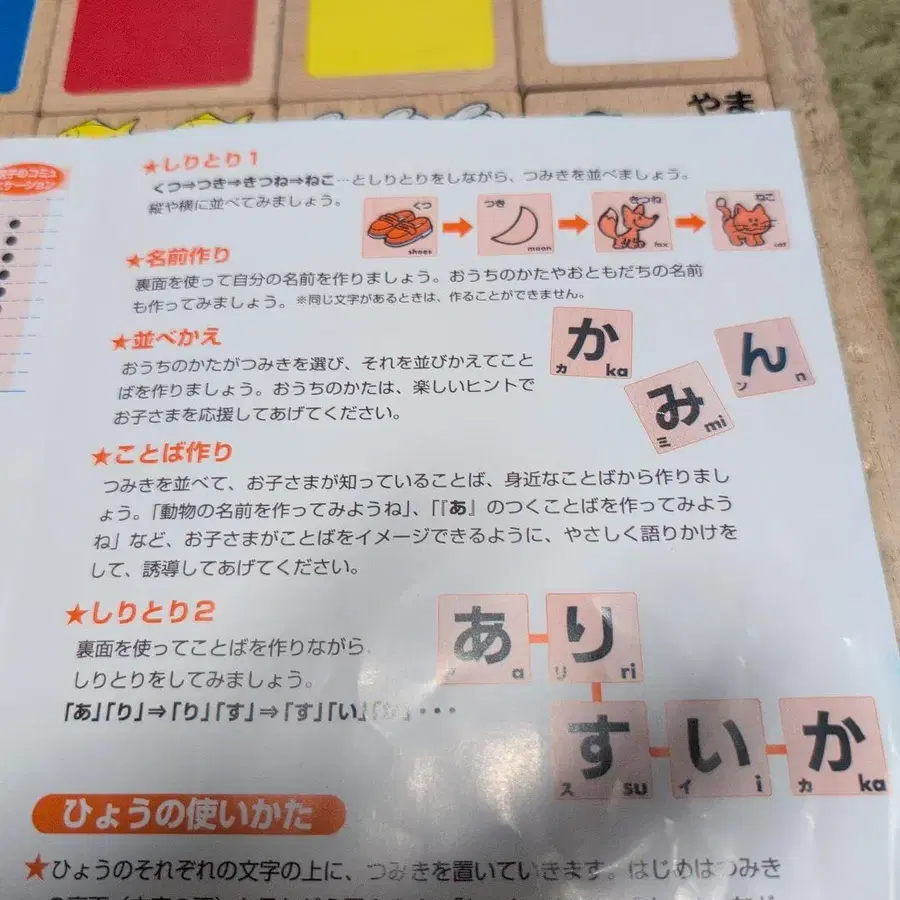 やま
★しりとり1
くつ⇒つき⇒きつね⇒ねこ…としりとりをしながら、つみきを並べましょう。
縦や横に並べてみましょう。
くつ
shoes
つき
moon
きつね
fox
ねこ
cat
★名前作り
裏面を使って自分の名前を作りましょう。おうちのかたやおともだちの名前
も作ってみましょう。※同じ文字があるときは、作ることができません。
★並べかえ
おうちのかたがつみきを選び、それを並びかえてこと
ばを作りましょう。おうちのかたは、楽しいヒントで
お子さまを応援してあげてください。
か
カ ka
み
ミ mi
ん
ン n
★ことば作り
つみきを並べて、お子さまが知っていることば、身近なことばから作りまし
ょう。「動物の名前を作ってみようね」、「『あ』のつくことばを作ってみよう
ね」など、お子さまがことばをイメージできるように、やさしく語りかけを
して、誘導してあげてください。
★しりとり2
裏面を使ってことばを作りながら
しりとりをしてみましょう。
「あ」「り」⇒「り」「す」⇒「す」「い」「か」・・・
あ
a
り
リ ri
す
ス su
い
イ i
か
カ ka
ひょうの使いかた
★ひょうのそれぞれの文字の上に、つみきを置いていきます。はじめはつみき